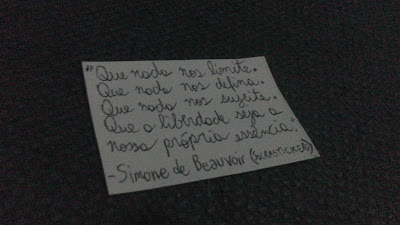 "Que nada nos limite.
Que nada nos defina.
Que nada nos sujeite.
Que a liberdade seja a
nossa própria essência."
-Simone de Beauvoir